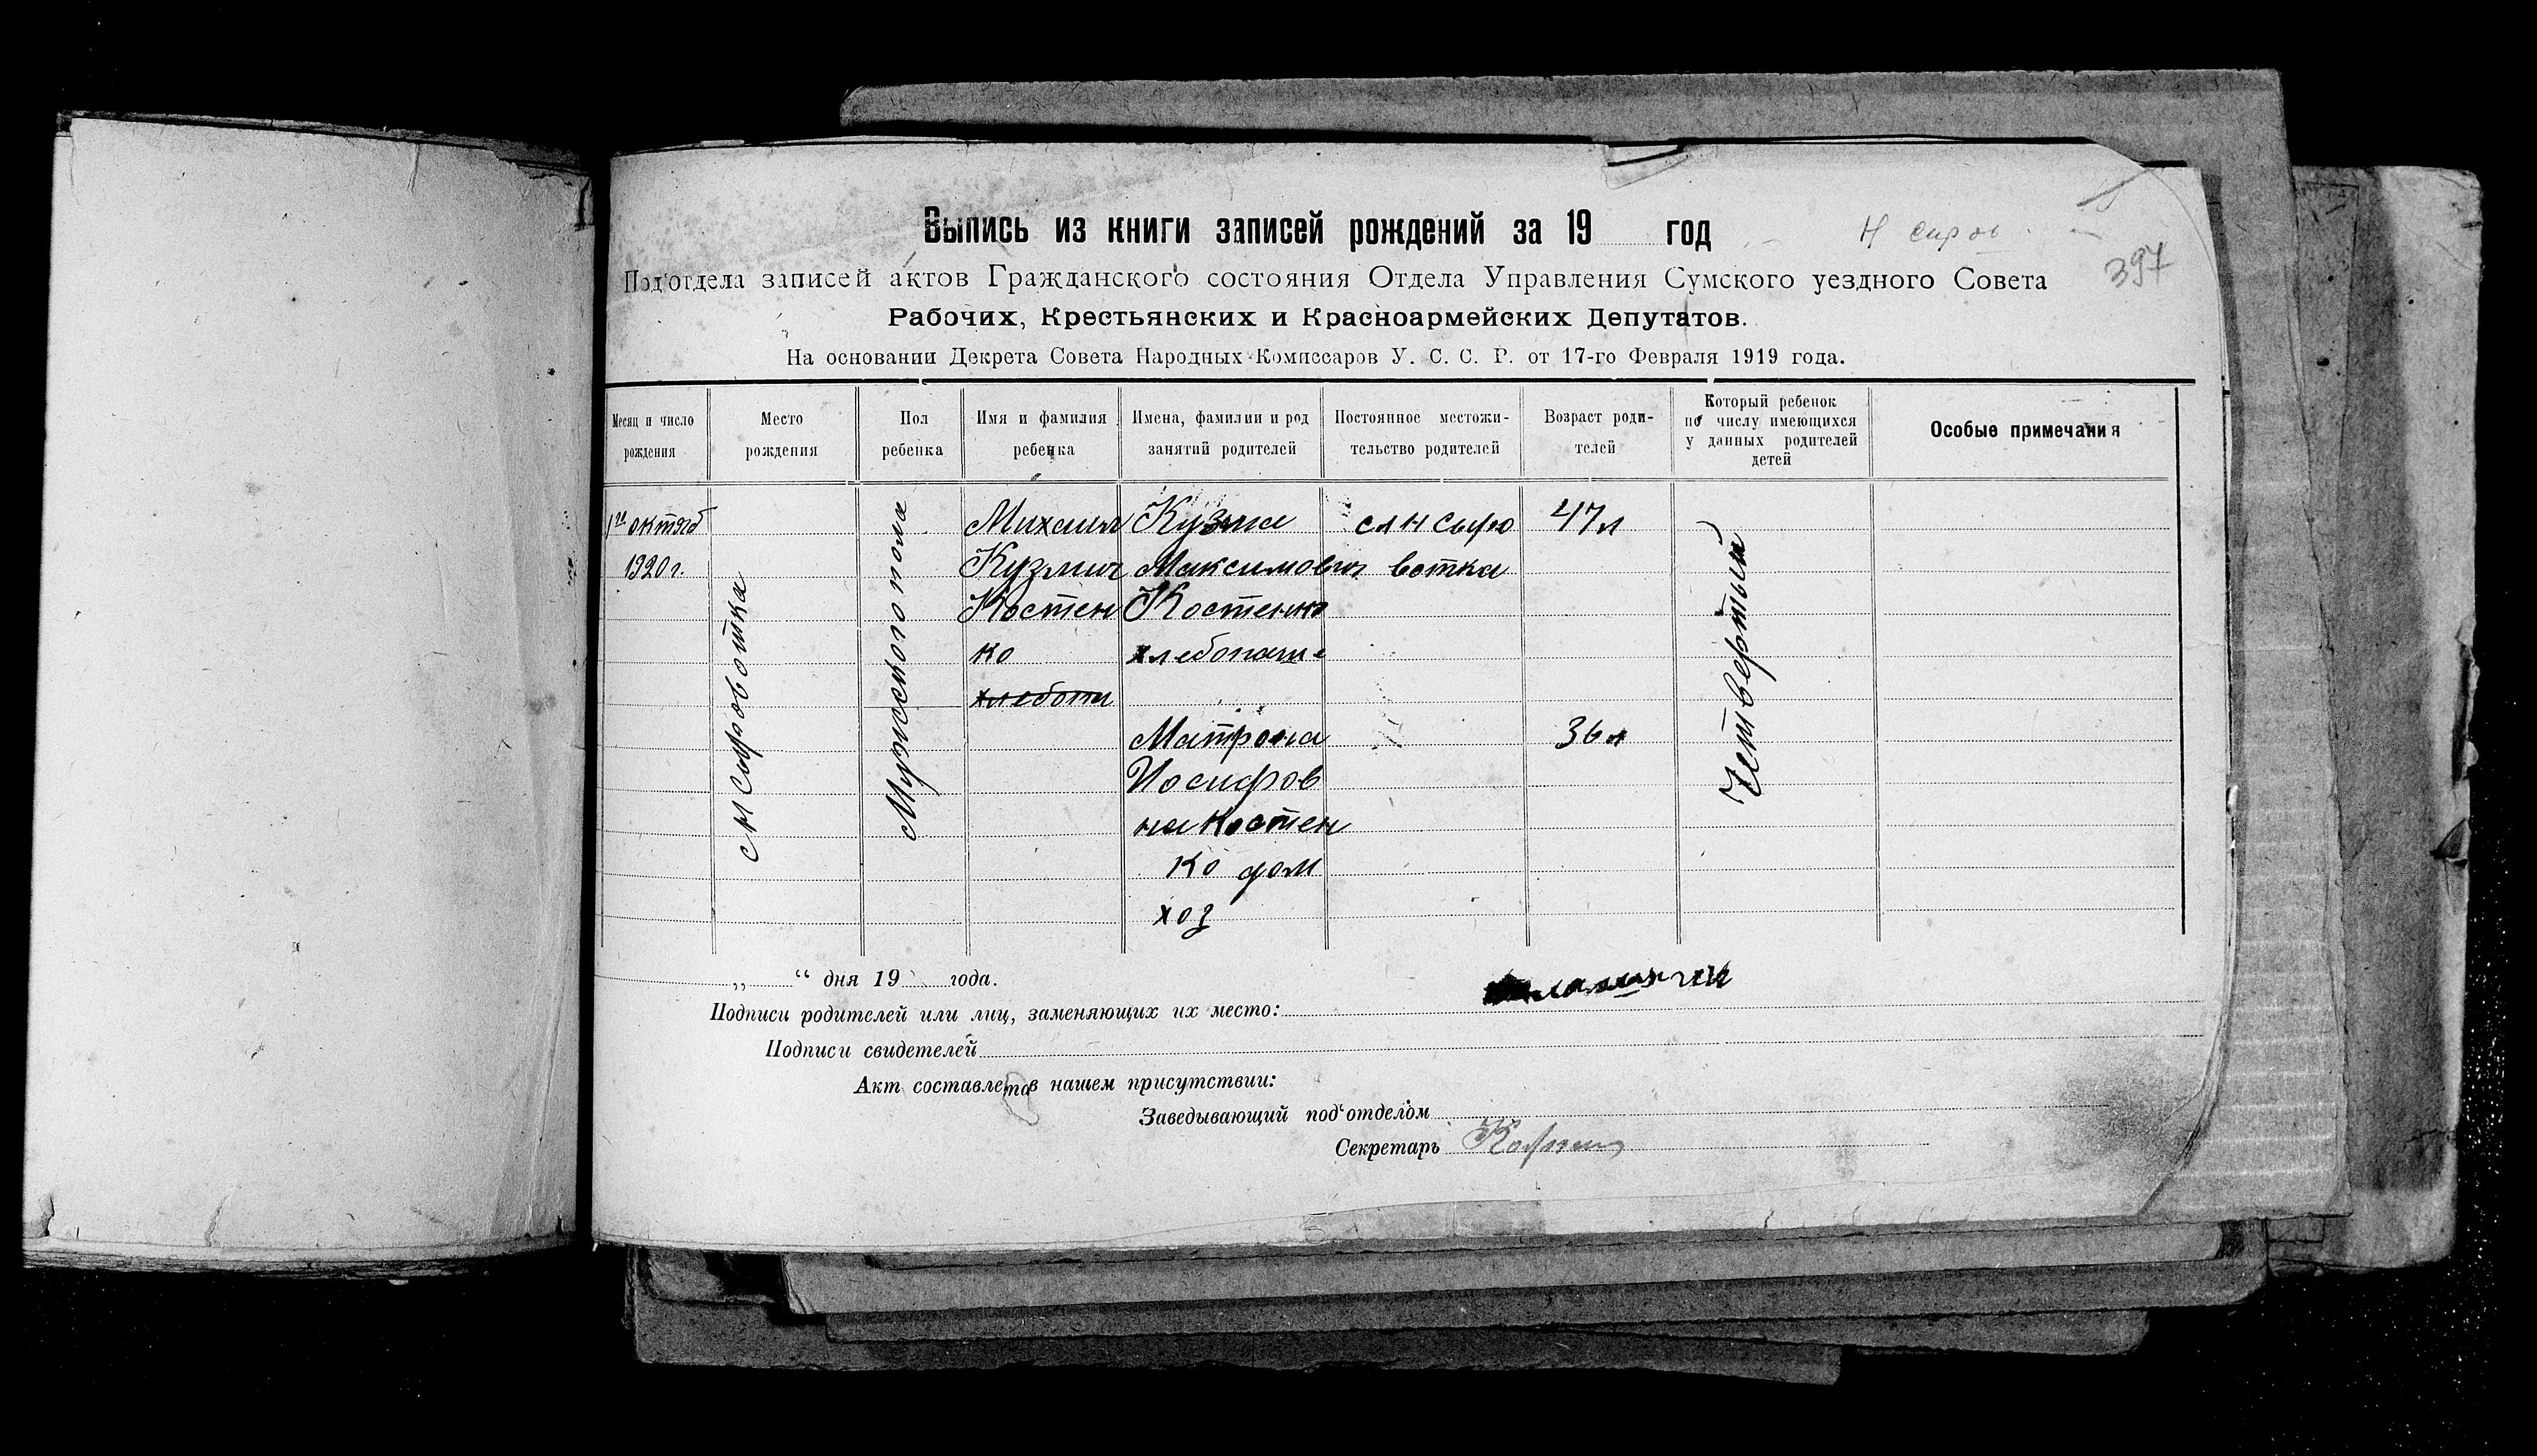 Выпись из книги записей рождений за 19 год
Н сиров
397
Под'отдела записей актов Гражданского состояния Отдела Управления Сумского уездного Совета
Рабочих, Крестьянских и Красноармейских Депутатов.
На основании Декрета Совета Народных Комиссаров У. С. С. Р. от 17-го Февраля 1919 года.
Месяц и число рождения
Место рождения
Пол ребенка
Имя и фамилия ребенка
Имена, фамилии и род занятий родителей
Постоянное местожительство родителей
Возраст родителей
Который ребенок по числу имеющихся у данных родителей детей
Особые примечания
1го октяб
1920 г.
с Н Сыроватка
Мужеского пола
Михаил
Кузмич
Костен
ко
хлебопа
Кузма
Максимович
Костенко
хлебопаш
Матрона
Иосифов
на Костен
ко дом
хоз
сл Н Сыро
ватка
47 л
36 л
Четвертый
„ “ дня 19 года.
Подписи родителей или лиц, заменяющих их место:
Подписи свидетелей
Акт составлен в нашем присутствии:
Заведывающий под'отделом
Секретарь